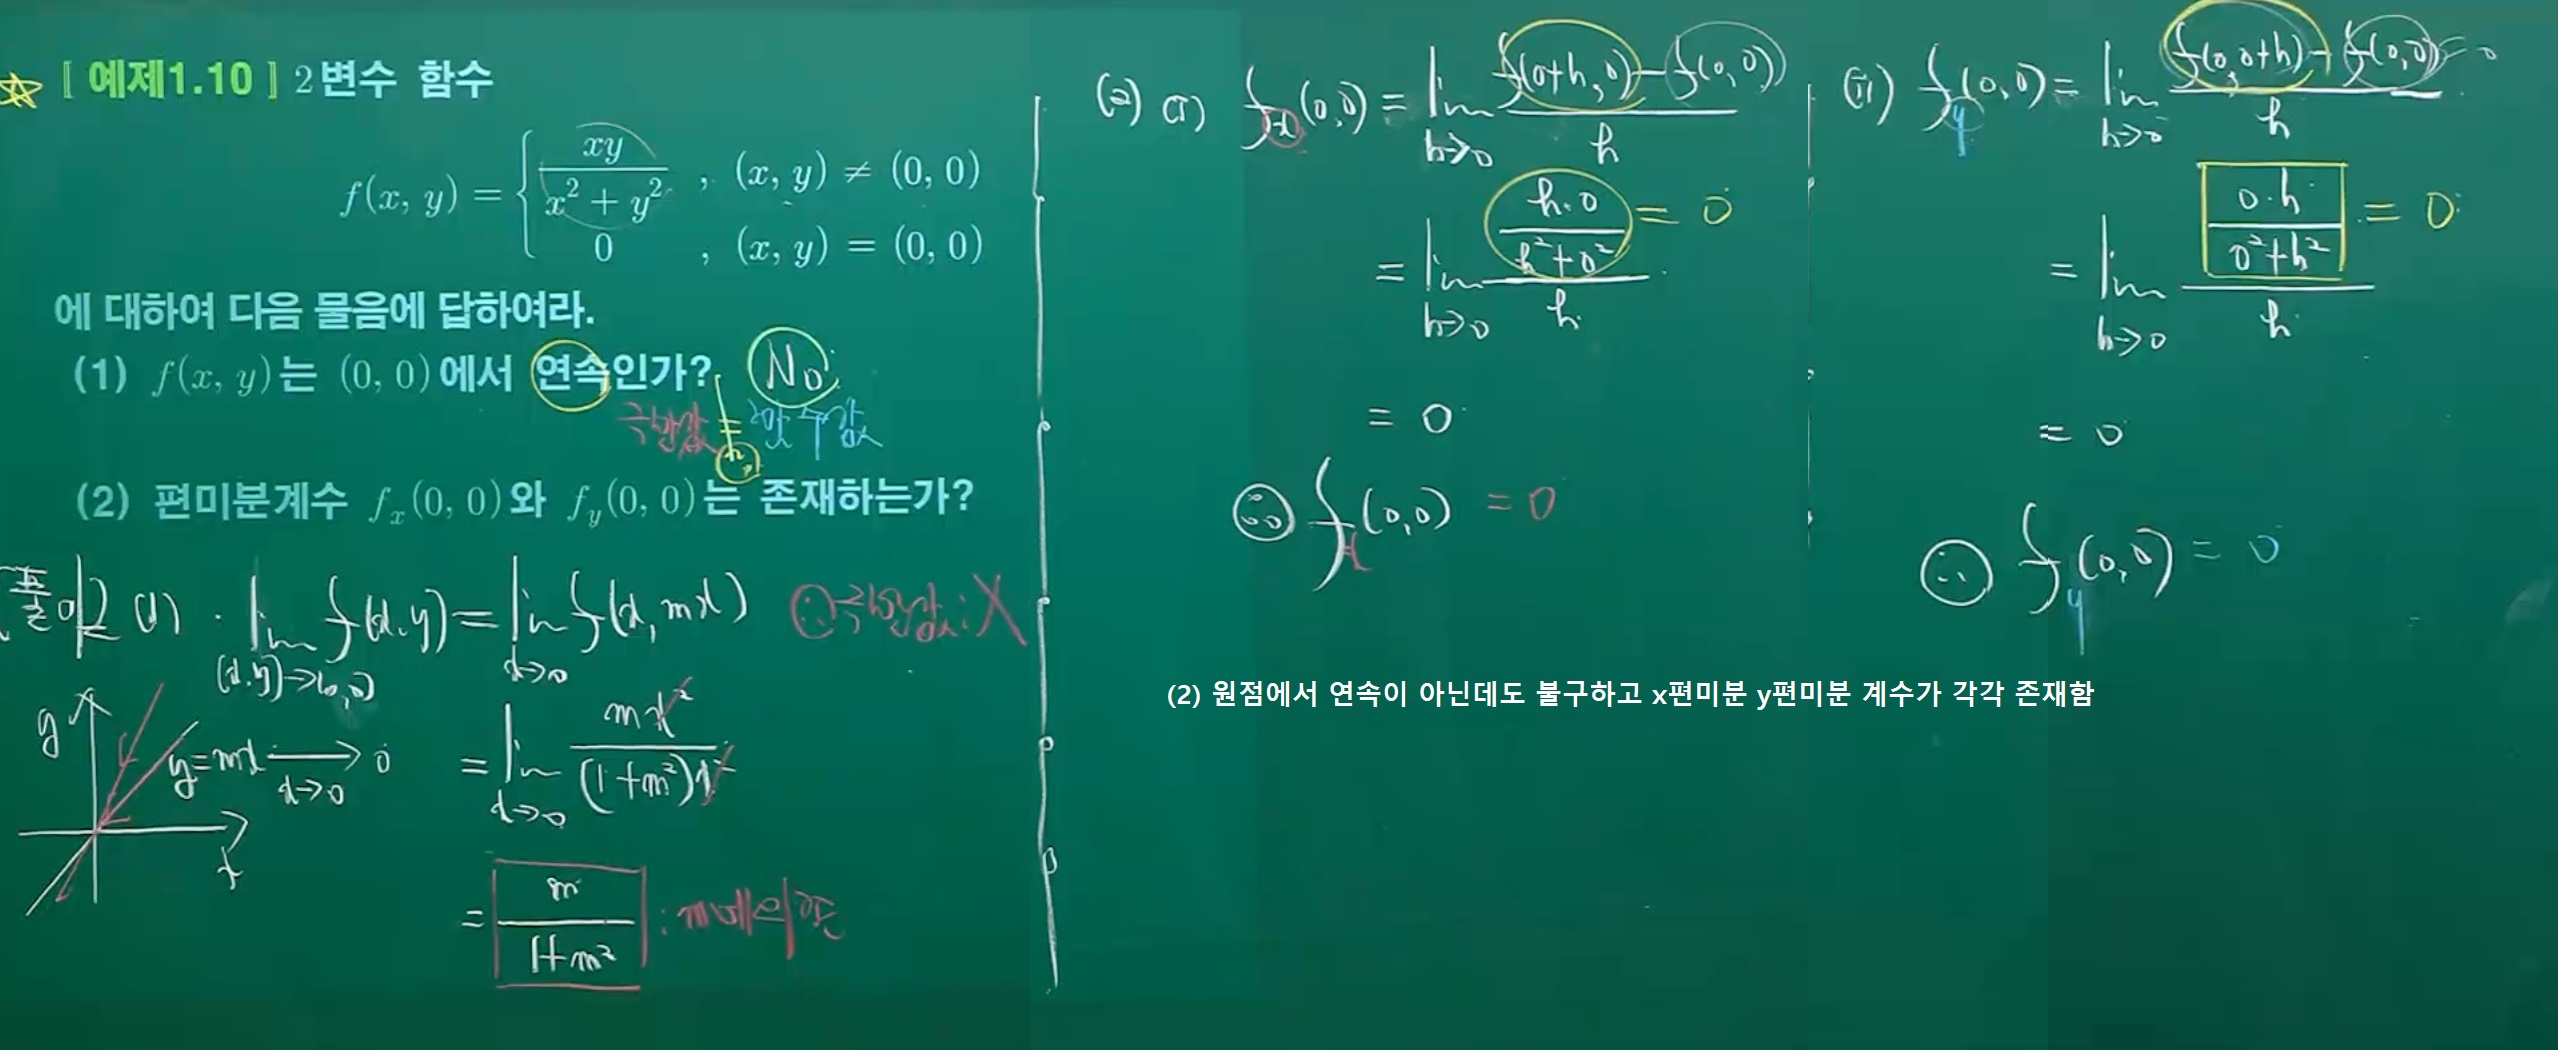 [ 예제1.10 ] 2변수 함수
f(x, y) = { xy / (x² + y²) , (x, y) ≠ (0, 0)
0 , (x, y) = (0, 0)
에 대하여 다음 물음에 답하여라.
(1) f(x, y)는 (0, 0)에서 연속인가? No
극한값 = 함수값
(2) 편미분계수 fx(0, 0)와 fy(0, 0)는 존재하는가?
풀이 (1) · lim (x,y)→(0,0) f(x,y) = lim x→0 f(x, mx) ∴ 극한값 : X
y
y=mx → 0
x→0
x
= lim x→0 mx² / (1+m²)x²
= m / (1+m²) : m에 의존
(2) (i) fx(0,0) = lim h→0 (f(0+h, 0) - f(0,0)) / h
= lim h→0 (h·0 / (h²+0²)) / h
= 0
= 0
∴ fx(0,0) = 0
(ii) fy(0,0) = lim h→0 (f(0,0+h) - f(0,0)) / h
= 0
= lim h→0 (0·h / (0²+h²)) / h
= 0
= 0
∴ fy(0,0) = 0
(2) 원점에서 연속이 아닌데도 불구하고 x편미분 y편미분 계수가 각각 존재함